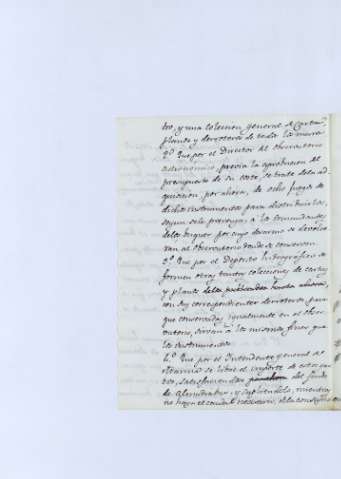 tro, y una coleccion general de Cartas,
planos y derroteros de todos los mares
2.º Que por el Director del observatorio
astronomico, previa la aprobacion del
presupuesto de su coste, se trate de la ad-
quisicion, por ahora, de ocho juegos de
dichos instrumentos para distribuirlos,
segun se le prevenga a los comandantes
de los buques por cuyo desarme se devolve-
ran al observatorio donde se conserven.
3.º Que por el Deposito hidrografico se
formen otras tantas colecciones de cartas
y planos de los publicados hasta ahora,
con sus correspondientes derroteros para
que conservadas igualmente en el obser-
vatorio, sirvan a los mismos fines que
los instrumentos.
4.º Que por el Intendente general de
Marina se libre el importe de estos cos-
tes, satisfaciendose del fondo
de Almirantazgo, y supliendolo, mientras
no haya el caudal necesario, de la consignacion